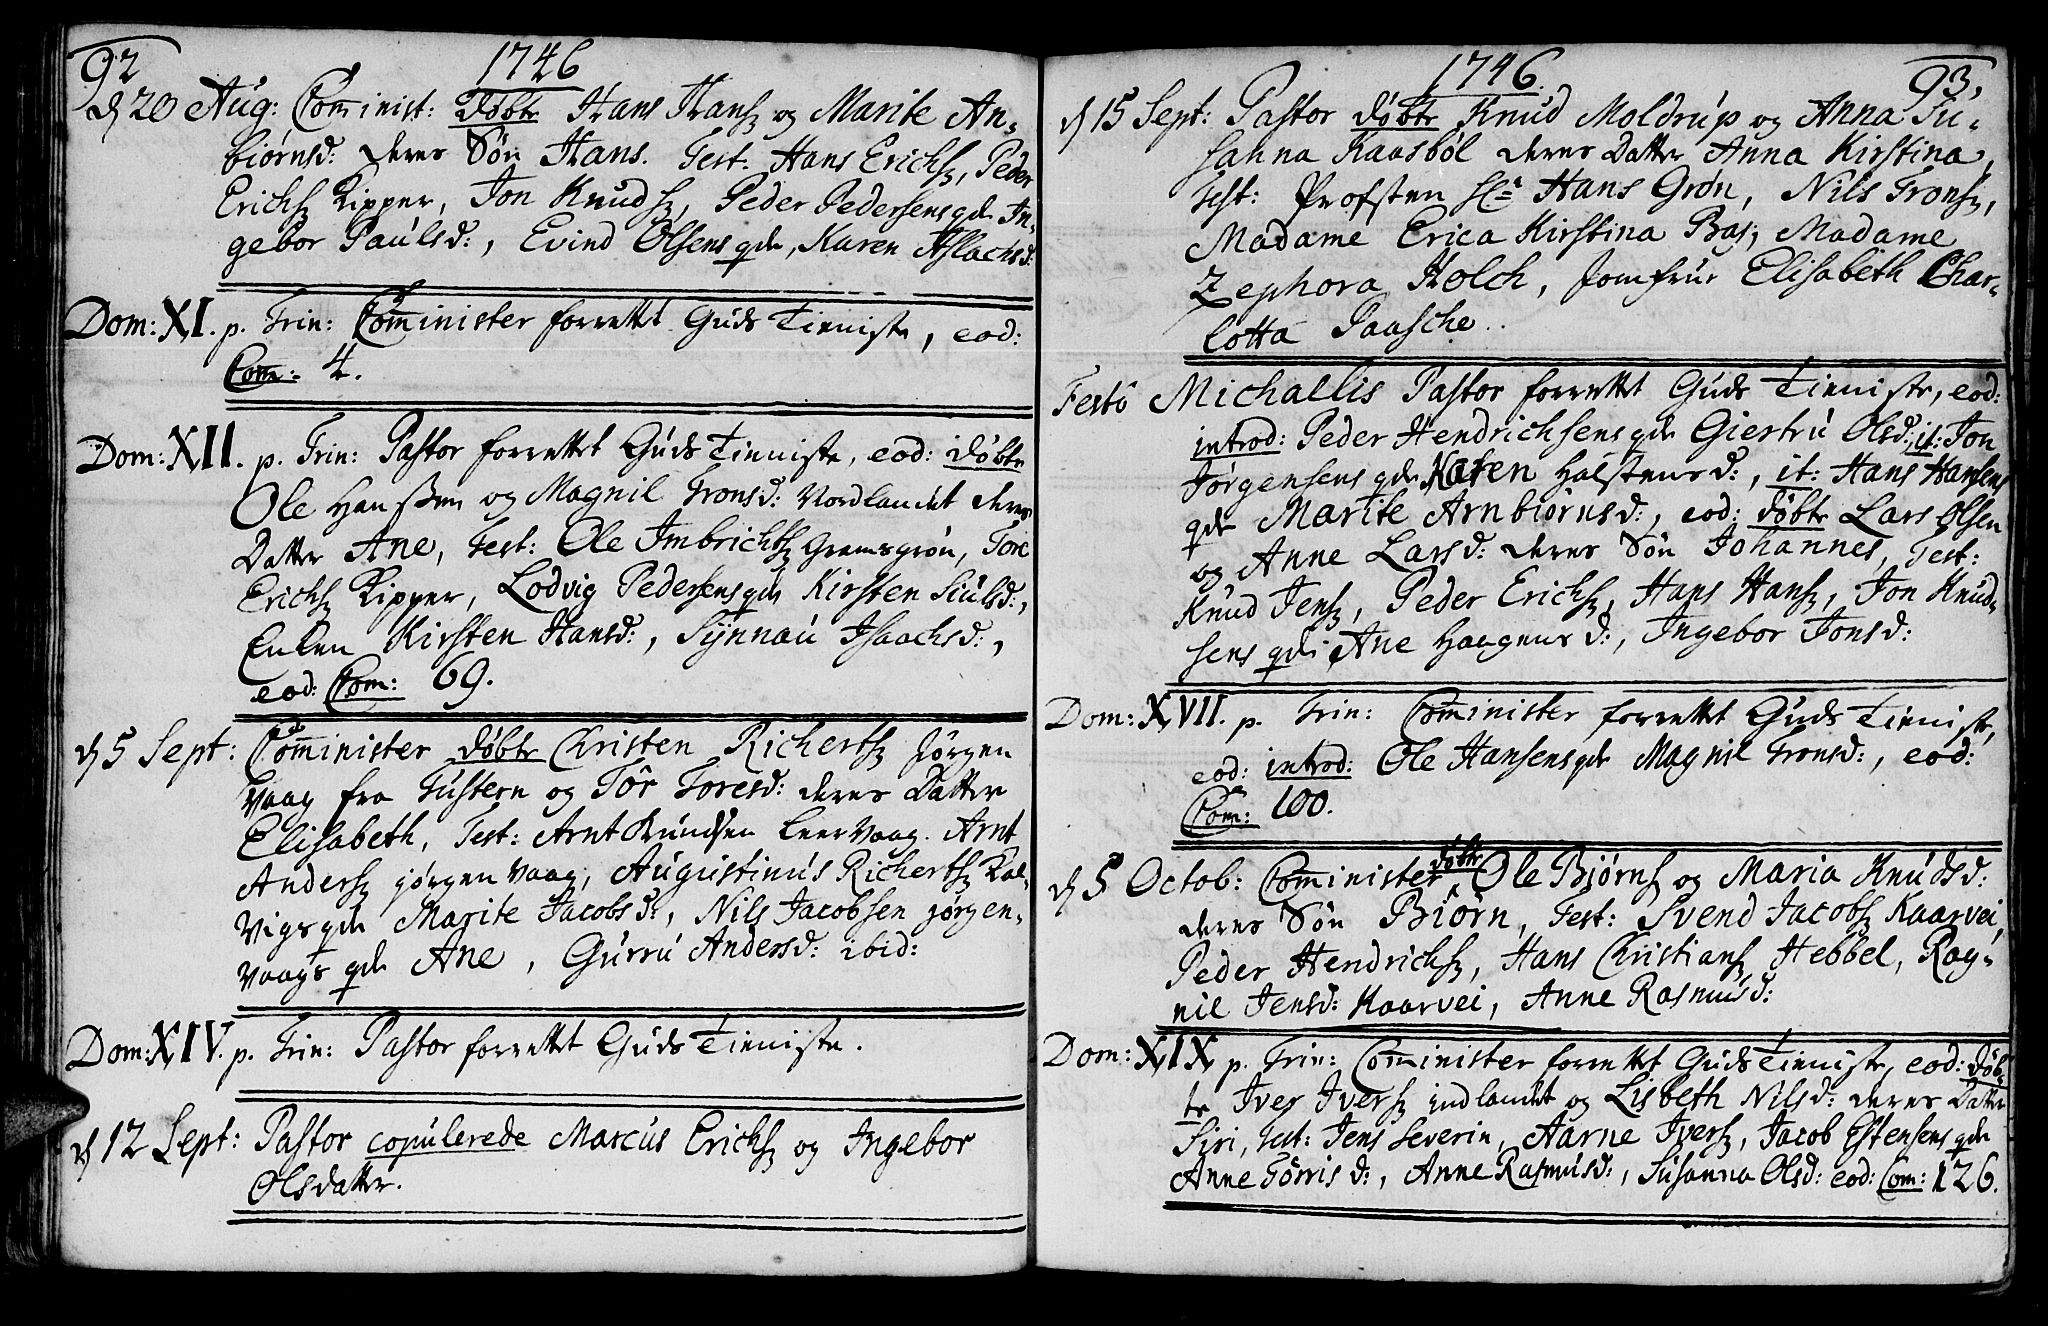 92
1746
d 20 Aug: Comminist: døbte Hans Hans: og Marite An-
biørnsd: deres Søn Hans. Test. Hans Erichs:, Peder
Erichs: Kipper, Jon Knuds:, Peder Pedersens qde In-
gebor Paulsd:, Evind Olsens qde, Karen Aslachsd:
Dom: XI. p. Trin: Comminister forrettet Guds Tieniste, eod:
Com: 4.
Dom: XII. p. Trin: Pastor forrettet Guds Tieniste, eod: døbte
Ole Hanssen og Magnil Tronsd: Nordlandet deres
Datter Ane, Test: Ole Imbrichts: Gremsgrøn, Tore
Erichs: Kipper, Lodvig Pedersens qde Kirsten Siulsd:,
Enken Kirsten Hansd:, Synnau Isaachsd:,
eod: Com: 69.
d 5 Sept: Comminister døbte Christen Richerts: Jørgen
Vaag fra Tustern og Tôr Toresd: deres Datter
Elisabeth, Test: Arnt Knudsen Leervaag. Arnt
Anders: Jørgen Vaag, Augustinus Richerts: Kal-
vigs qde Marite Jacobsd:, Nils Jacobsen Jørgen-
vaags qde Ane, Gurru Andersd: ibid:
Dom: XIV. p. Trin: Pastor forrettet Guds Tieniste.
d 12 Sept: Pastor copulerede Marcus Erichs: og Ingebor
Olsdatter.
1746.
93.
d 15 Sept: Pastor døbte Knud Moldrup og Anna Su-
sanna Kaasbøl deres Datter Anna Kirstina,
Test: Profsten Hr Hans Grøn, Nils Trons:,
Madame Erica Kirstina Bas, Madame
Zephora Holch, Jomfrue Elisabeth Char-
lotta Paasche.
Festô Michaelis Pastor forrettet Guds Tieniste, eod:
introd: Peder Hendrichsens qde Giertru Olsd: it: Jon
Jørgensens qde Karen Halstensd:, it: Hans Hansens
qde Marite Arnbiørnsd:, eod: døbte Lars Olsen
og Anne Larsd: deres Søn Johannes, Test:
Knud Jens:, Peder Erichs:, Hans Hans:, Jon Knud-
sens qde Ane Haagensd:, Ingebor Jonsd:
Dom: XVII. p. Trin: Comminister forrettet Guds Tieniste,
eod: introd: Ole Hansens qde Magnil Tronsd:, eod:
Com: 100.
d 5 Octob: Comminister døbte Ole Bjørns: og Maria Knudsd:
deres Søn Biørn, Test: Svend Jacobs: Kaarvei,
Peder Hendrichs:, Hans Christians: Hebbel, Rag-
nil Jensd: Kaarvei, Anne Rasmusd:
Dom: XIX p. Trin: Comminister forrettet Guds Tieniste, eod: døb-
te Iver Ivers: indlandet og Lisbeth Nilsd: deres Datter
Siri, Test: Jens Severin, Aarne Ivers:, Jacob Estensens qde
Anne Tørrisd:, Anne Rasmusd:, Susanna Olsd: eod: Com: 126.